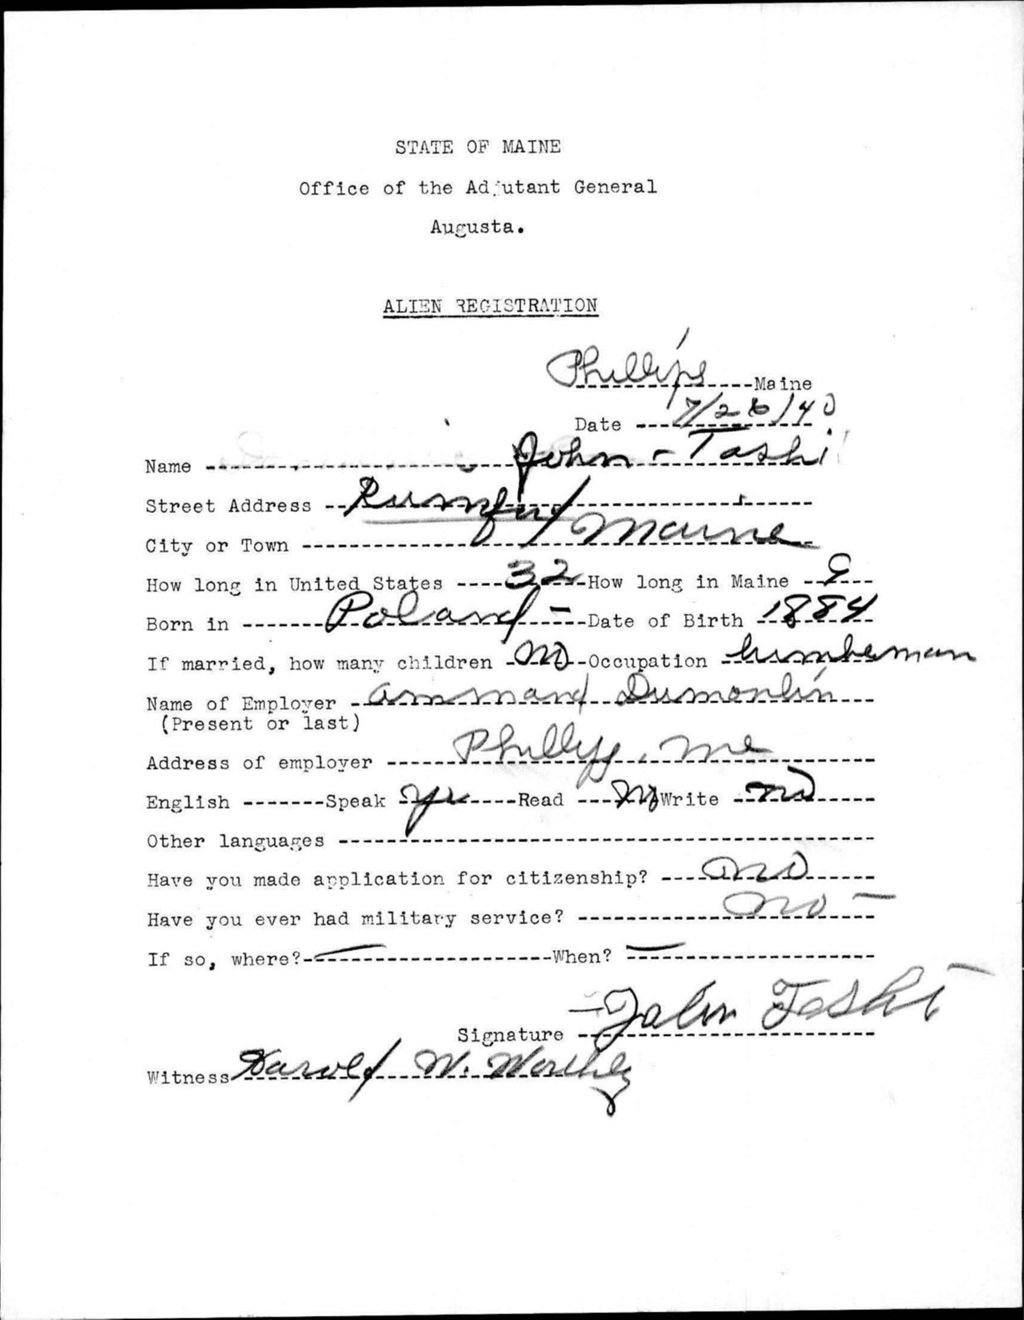 STATE OF MAINE
Office of the Adjutant General
Augusta.
ALIEN REGISTRATION
Phillips Maine
Date 7/26/40
Name John - Tashi
Street Address Rumford
City or Town Maine
How long in United States 32 How long in Maine 9
Born in Poland - Date of Birth 1884
If married, how many children No Occupation lumberman
Name of Employer Ammand Dumonlin
(Present or last)
Address of employer Phillips, Me
English Speak Yes Read No Write No
Other languages
Have you made application for citizenship? No
Have you ever had military service? No -
If so, where? - When? -
Signature - John Tashi -
Witness Harold W. Worthley